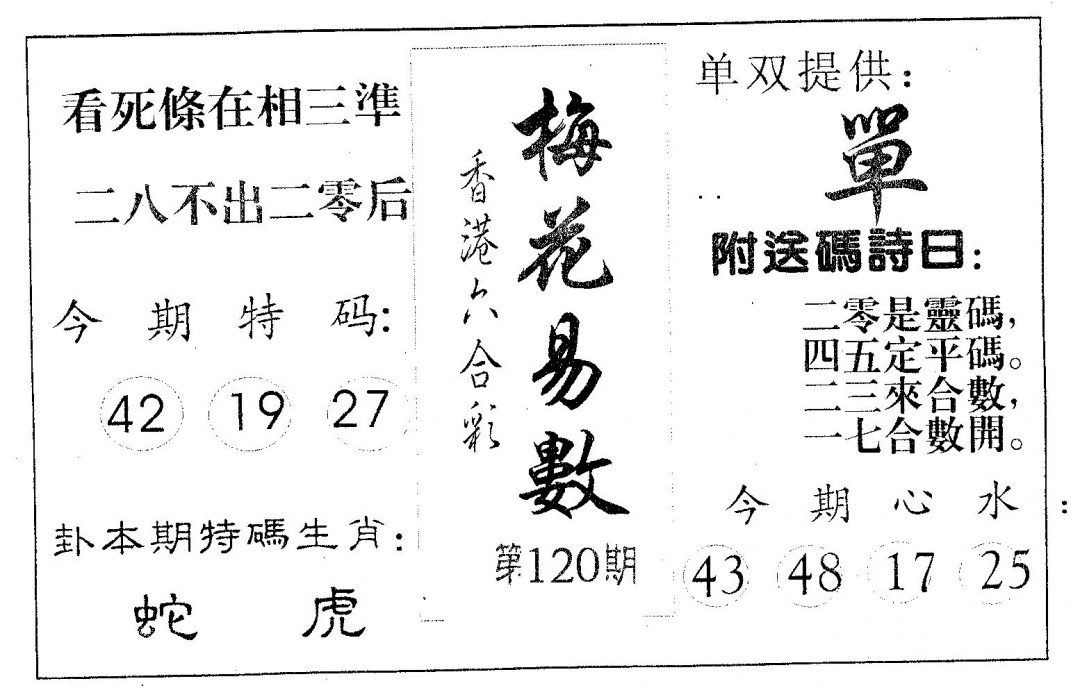 看死條在相三準
二八不出二零后
今期特码:
42 19 27
卦本期特碼生肖:
蛇 虎
梅花易數
香港六合彩
第120期
单双提供:
單
附送碼詩曰:
二零是靈碼,
四五定平碼。
二三來合數,
一七合數開。
今期心水:
43 48 17 25